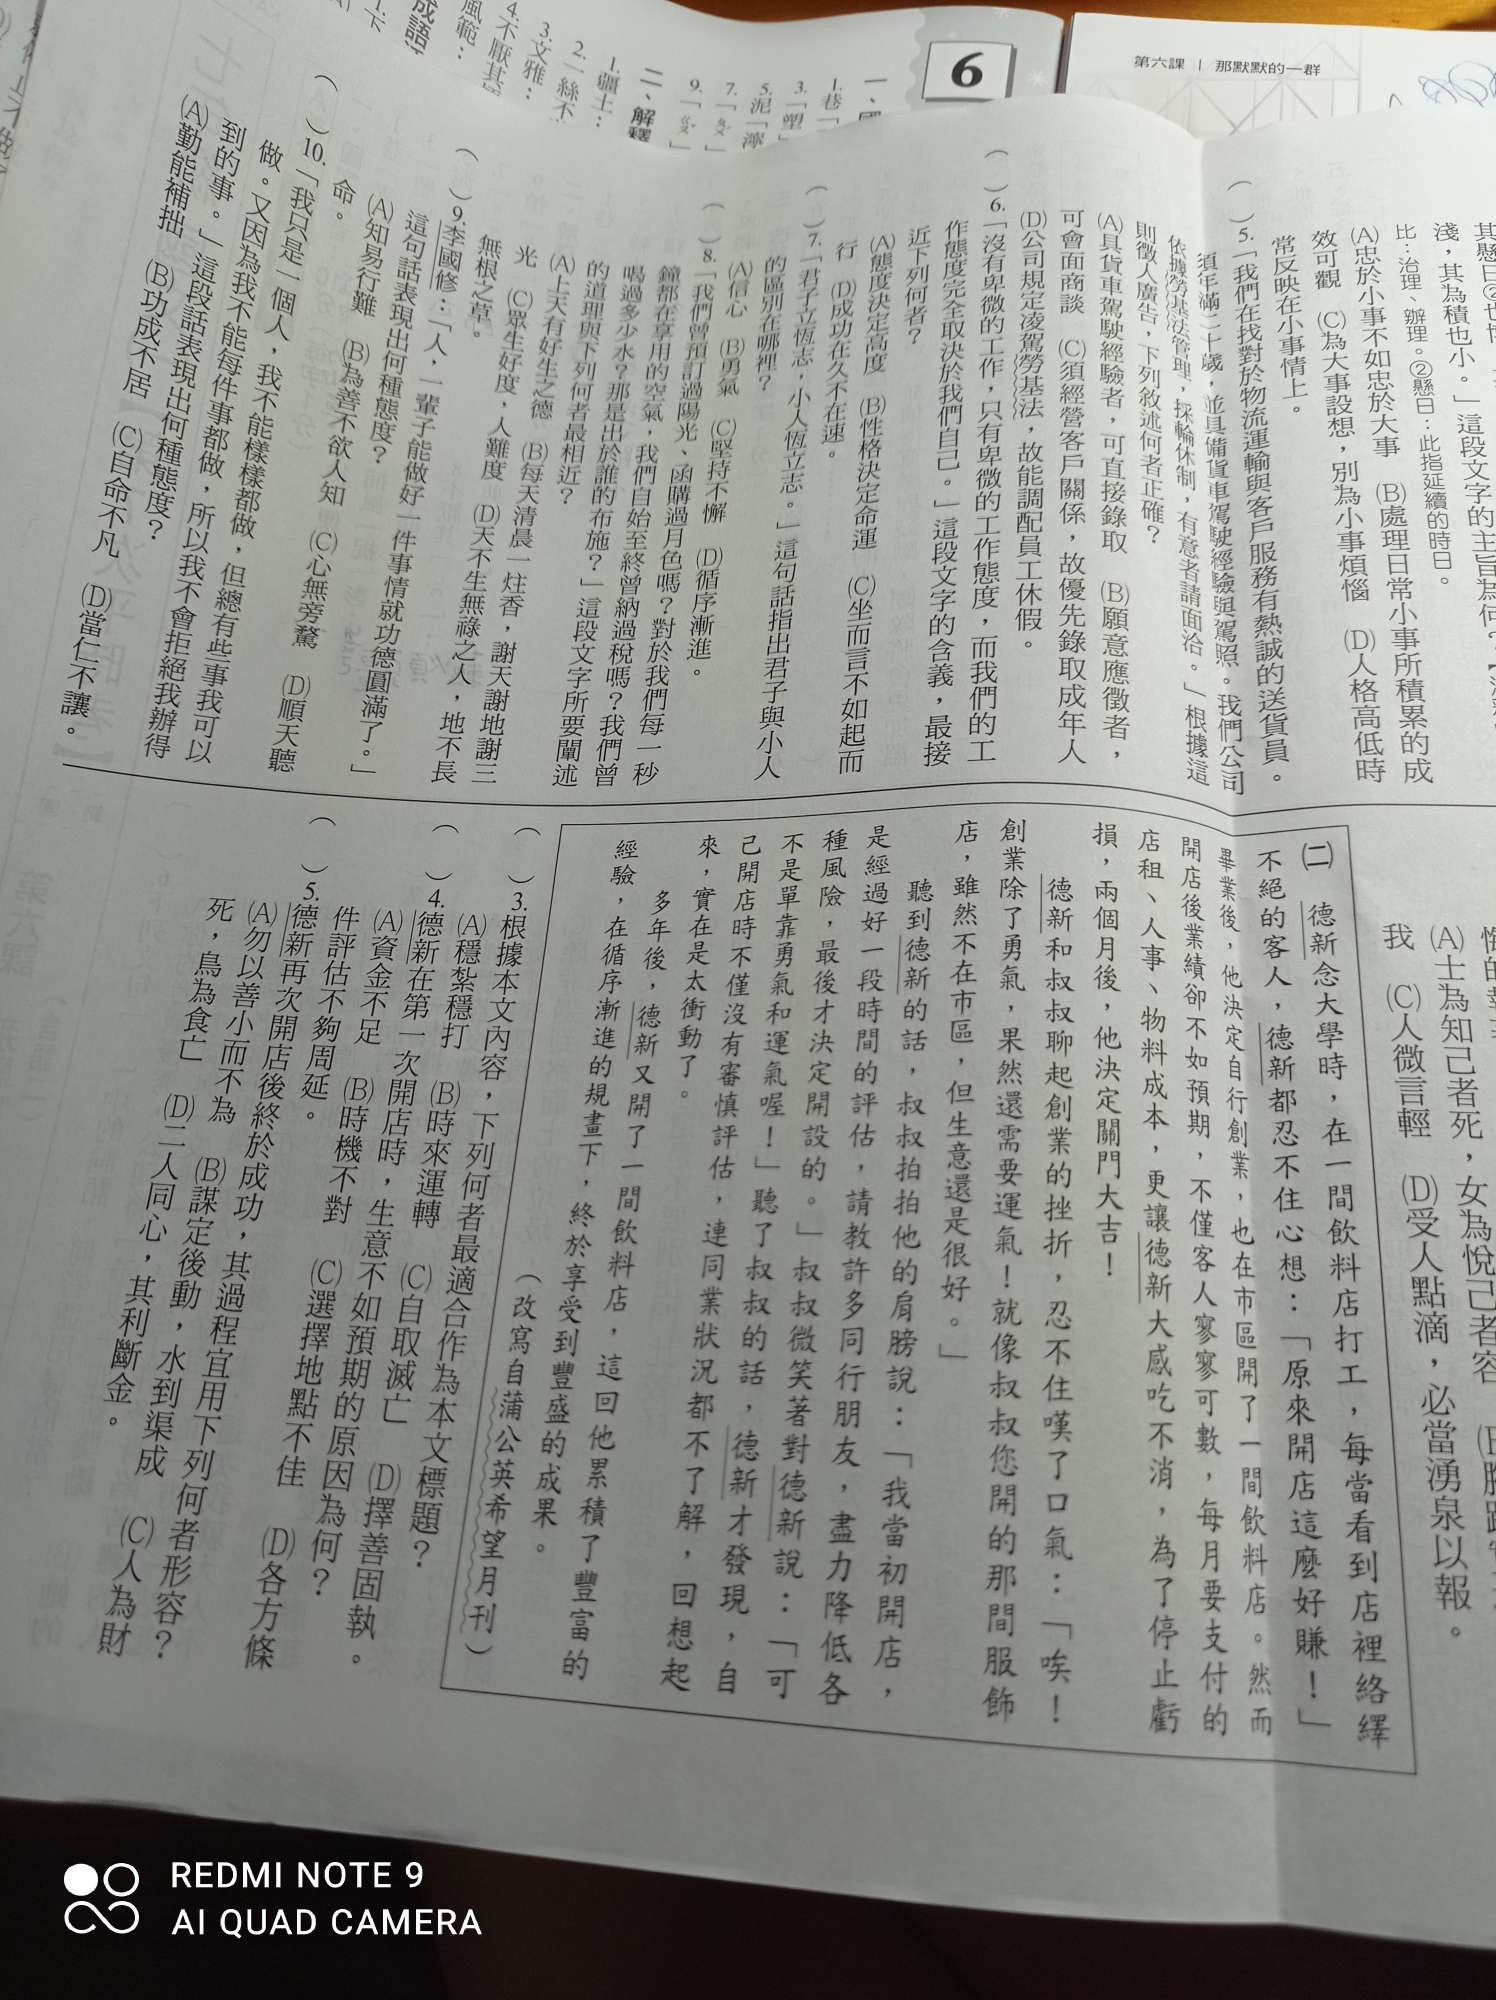 6
第六課｜那默默的一群
淺，其為積也小。」這段文字的主旨為何？
比：治理、辦理。②懸日：此指延續的時日。
(A)忠於小事不如忠於大事　(B)處理日常小事所積累的成
效可觀　(C)為大事設想，別為小事煩惱　(D)人格高低時
常反映在小事情上。
（　）5.「我們在找對於物流運輸與客戶服務有熱誠的送貨員。
須年滿二十歲，並具備貨車駕駛經驗與駕照。我們公司
依據勞基法管理，採輪休制，有意者請面洽。」根據這
則徵人廣告，下列敘述何者正確？
(A)具貨車駕駛經驗者，可直接錄取　(B)願意應徵者，
可會面商談　(C)須經營客戶關係，故優先錄取成年人
(D)公司規定凌駕勞基法，故能調配員工休假。
（　）6.「沒有卑微的工作，只有卑微的工作態度，而我們的工
作態度完全取決於我們自己。」這段文字的含義，最接
近下列何者？
(A)態度決定高度　(B)性格決定命運　(C)坐而言不如起而
行　(D)成功在久不在速。
（　）7.「君子立恆志，小人恆立志。」這句話指出君子與小人
的區別在哪裡？
(A)信心　(B)勇氣　(C)堅持不懈　(D)循序漸進。
（　）8.「我們曾預訂過陽光、函購過月色嗎？對於我們每一秒
鐘都在享用的空氣，我們自始至終曾納過稅嗎？我們曾
喝過多少水？那是出於誰的布施？」這段文字所要闡述
的道理與下列何者最相近？
(A)上天有好生之德　(B)每天清晨一炷香，謝天謝地謝三
光　(C)眾生好度，人難度　(D)天不生無祿之人，地不長
無根之草。
（　）9.李國修：「人，一輩子能做好一件事情就功德圓滿了。」
這句話表現出何種態度？
(A)知易行難　(B)為善不欲人知　(C)心無旁騖　(D)順天聽
命。
（　）10.「我只是一個人，我不能樣樣都做，但總有些事我可以
做。又因為我不能每件事都做，所以我不會拒絕我辦得
到的事。」這段話表現出何種態度？
(A)勤能補拙　(B)功成不居　(C)自命不凡　(D)當仁不讓。
(A)士為知己者死，女為悅己者容
我　(C)人微言輕　(D)受人點滴，必當湧泉以報。
㈡　德新念大學時，在一間飲料店打工，每當看到店裡絡繹
不絕的客人，德新都忍不住心想：「原來開店這麼好賺！」
畢業後，他決定自行創業，也在市區開了一間飲料店。然而
開店後業績卻不如預期，不僅客人寥寥可數，每月要支付的
店租、人事、物料成本，更讓德新大感吃不消，為了停止虧
損，兩個月後，他決定關門大吉！
德新和叔叔聊起創業的挫折，忍不住嘆了口氣：「唉！
創業除了勇氣，果然還需要運氣！就像叔叔您開的那間服飾
店，雖然不在市區，但生意還是很好。」
聽到德新的話，叔叔拍拍他的肩膀說：「我當初開店，
是經過好一段時間的評估，請教許多同行朋友，盡力降低各
種風險，最後才決定開設的。」叔叔微笑著對德新說：「可
不是單靠勇氣和運氣喔！」聽了叔叔的話，德新才發現，自
己開店時不僅沒有審慎評估，連同業狀況都不了解，回想起
來，實在是太衝動了。
多年後，德新又開了一間飲料店，這回他累積了豐富的
經驗，在循序漸進的規畫下，終於享受到豐盛的成果。
（改寫自蒲公英希望月刊）
（　）3.根據本文內容，下列何者最適合作為本文標題？
(A)穩紮穩打　(B)時來運轉　(C)自取滅亡　(D)擇善固執。
（　）4.德新在第一次開店時，生意不如預期的原因為何？
(A)資金不足　(B)時機不對　(C)選擇地點不佳　(D)各方條
件評估不夠周延。
（　）5.德新再次開店後終於成功，其過程宜用下列何者形容？
(A)勿以善小而不為　(B)謀定後動，水到渠成　(C)人為財
死，鳥為食亡　(D)二人同心，其利斷金。
REDMI NOTE 9
AI QUAD CAMERA